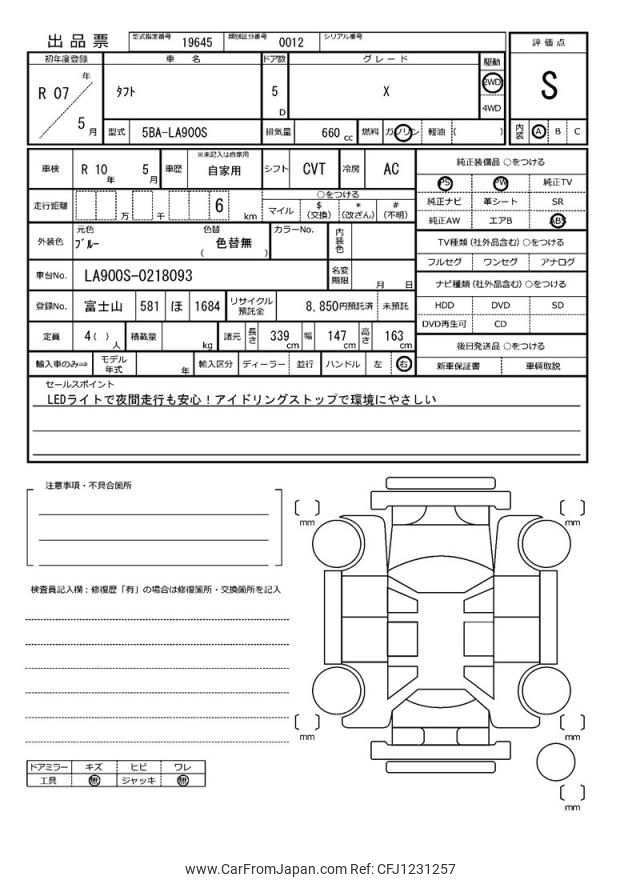 出品票
型式指定番号 19645 類別区分番号 0012 シリアル番号
初年度登録 車名 ドア数 グレード 駆動 評価点
R 07 年 5 月
ﾀﾌﾄ 5 D X 2WD 4WD S
型式 5BA-LA900S 排気量 660 cc 燃料 ガソリン 軽油 ( ) 内装 A B C
車検 R 10 年 5 月 車歴 ※未記入は自家用 自家用 シフト CVT 冷房 AC
純正装備品 ○をつける
PS PW 純正TV
純正ナビ 革シート SR
純正AW エアB ABS
走行距離 万 千 6 km
○をつける
マイル $(交換) *(改ざん) #(不明)
外装色 元色 ﾌﾞﾙｰ 色替 色替無 ( ) カラーNo. 内装色
TV種類 (社外品含む) ○をつける
フルセグ ワンセグ アナログ
車台No. LA900S-0218093 名変期限 月 日
ナビ種類 (社外品含む) ○をつける
HDD DVD SD
DVD再生可 CD
登録No. 富士山 581 ほ 1684 リサイクル預託金 8,850円預託済 未預託
定員 4 ( ) 人 積載量 kg 諸元 長さ 339 cm 幅 147 cm 高さ 163 cm
後日発送品 ○をつける
新車保証書 車輌取説
輸入車のみ⇒ モデル年式 年 輸入区分 ディーラー 並行 ハンドル 左 右
セールスポイント
LEDライトで夜間走行も安心！アイドリングストップで環境にやさしい
注意事項・不具合箇所
検査員記入欄：修復歴「有」の場合は修復箇所・交換箇所を記入
mm
mm
mm
mm
mm
ドアミラー キズ ヒビ ワレ
工具 無 ジャッキ 無
www.CarFromJapan.com Ref: CFJ1231257